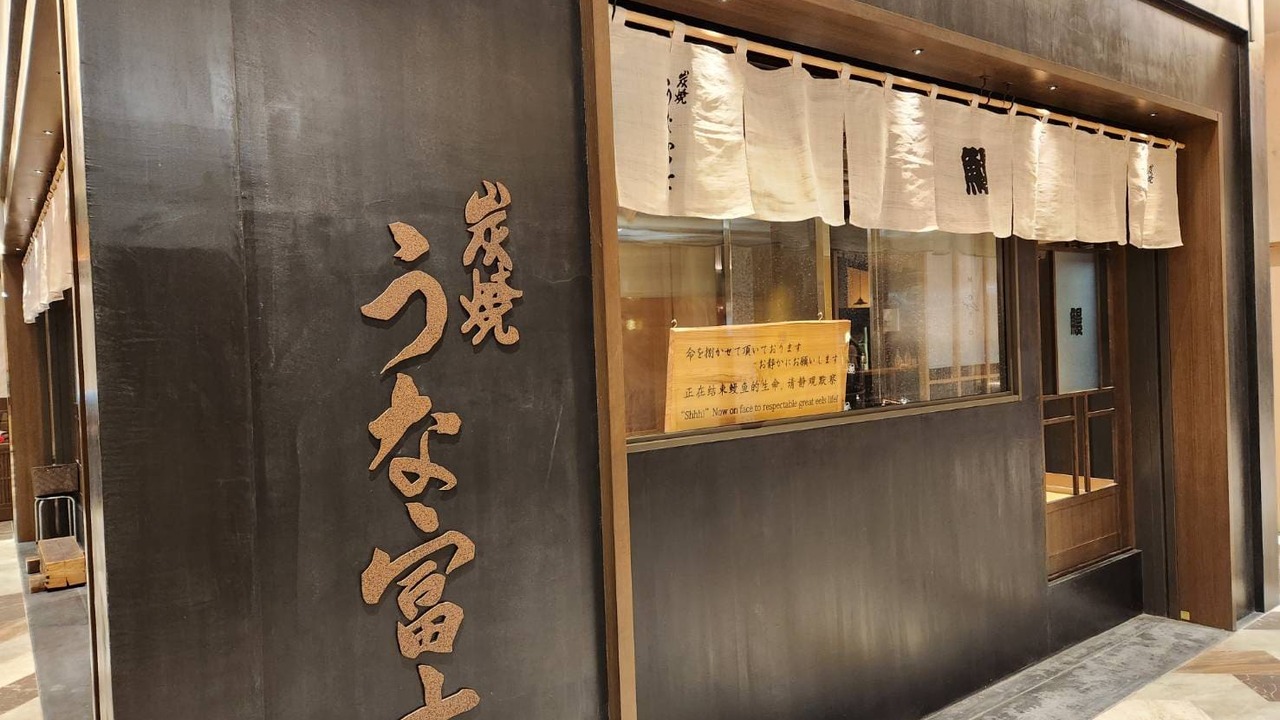 炭焼
うな富士
炭焼
うなふじ
鰻
炭焼
鰻
命を捌かせて頂いております
お静かにお願いします
正在结束鳗鱼的生命，请静观默察
"Shhh!" Now on face to respectable great eels life!